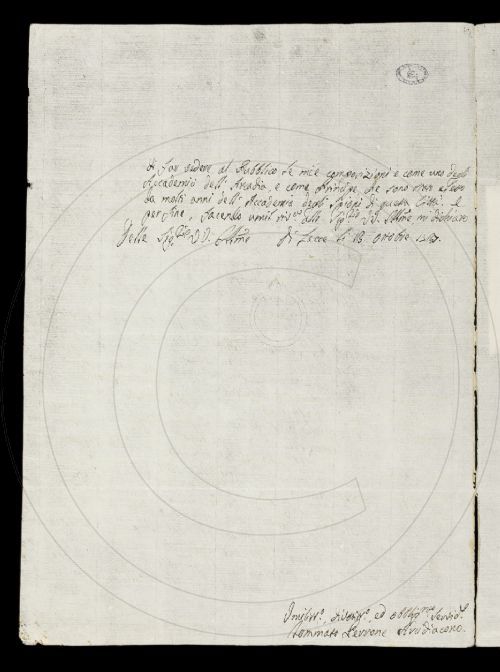 A far vedere al Pubblico le mie composizioni e come uno degli
Accademici dell'Arcadia, e come Principe, che sono stato eletto
da molti anni dell'Accademia degli Spioni di questa Città. E
per fine, facendo umil. riv. alle VV. Illme mi dichiaro
Delle VV. Illme Di Lecce li 18 ottobre
Umiliss.o, divotiss.o, ed obblig.mo Servid.e
Tommaso Perrone Arcidiacono.